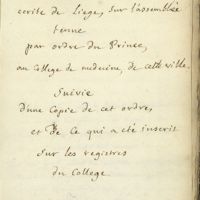 ecrite de Liege, sur l'assemblée
tenue
par ordre du Prince,
au College de medecine, de cette ville
Suivie
d'une Copie de cet ordre,
et de Ce qui a eté inscrit
sur les registres
du College